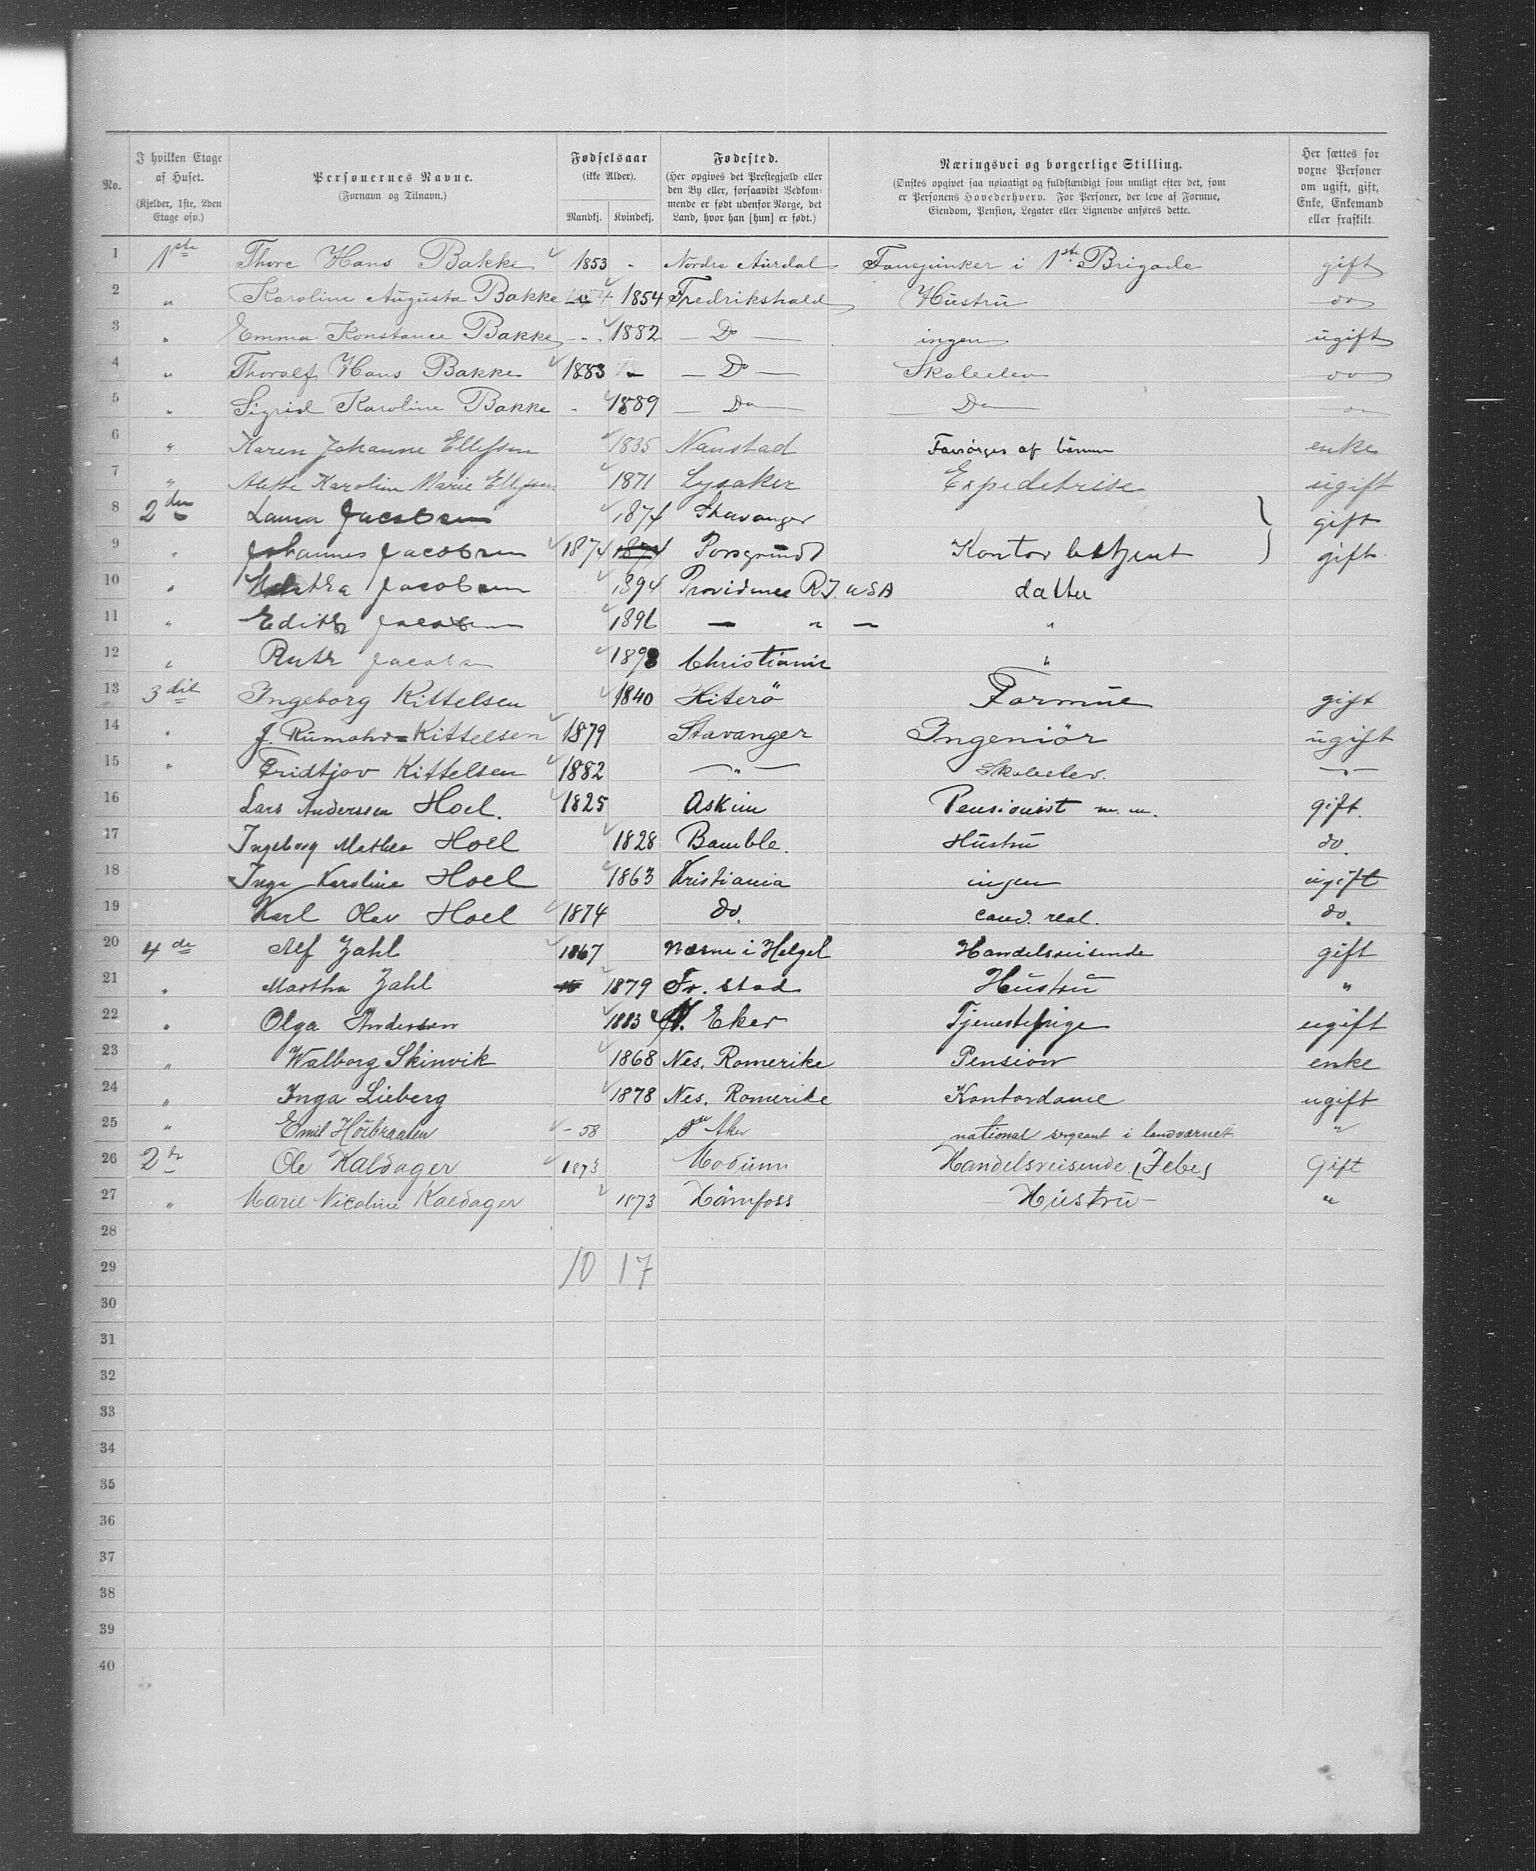 No. | I hvilken Etage af Huset. (Kjelder, 1ste, 2den Etage osv.) | Personernes Navne. (Fornavn og Tilnavn.) | Fødselsaar (ikke Alder). Mandkj. | Kvindekj. | Fødested. (Her opgives det Præstegjæld eller den By eller, forsaavidt Vedkommende er født udenfor Norge, det Land, hvor han [hun] er født.) | Næringsvei og borgerlige Stilling. (Ønskes opgivet saa nøiagtigt og fuldstændigt som muligt efter det, som er Personens Hovederhverv. For Personer, der leve af Formue, Eiendom, Pension, Legater eller Lignende anføres dette. | Her sættes for voxne Personer om ugift, gift, Enke, Enkemand eller fraskilt.
1 1ste Thore Hans Bakke 1853 - Nordre Aurdal Fanejunker i 1ste Brigade gift
2 " Karoline Augusta Bakke 1854 Fredrikshald Hustru do
3 " Emma Konstance Bakke - 1882 — Do — ingen ugift
4 " Thoralf Hans Bakke 1883 — Do — Skoleelev do
5 " Sigrid Karoline Bakke - 1889 — Do — Do
6 " Karen Johanne Ellefsen 1835 Nanstad Forsørges af børnene enke
7 " Alette Karoline Marie Ellefsen 1871 Lysaker Expeditrise ugift
8 2den Laura Jacobsen 1874 Stavanger } gift
9 " Johannes Jacobsen 1874 1874 Porsgrund Kontor betjent gift
10 " Jacobsen 1894 Providence R.I. USA datter
11 " Edith Jacobsen 1896 — " — "
12 " Ruth Jacobsen 1898 Christiania "
13 3die Ingeborg Kittelsen 1840 Hiterö Formue gift
14 " J. Rumohr=Kittelsen 1879 Stavanger Ingeniör ugift
15 " Fridtjov Kittelsen 1882 —"— Skoleelev. —"—
16 Lars Anderssen Hoel. 1825 Askim Pensionist m.m. gift.
17 Ingeborg Mathea Hoel 1828 Bamble. Hustru do.
18 Inga Karoline Hoel 1863 Kristiania ingen ugift
19 Karl Olav Hoel 1874 do. cand. real. do.
20 4de Alf Zahl 1867 Næsne i Helgel Handelsreisende gift
21 " Martha Zahl 1879 Fr. stad Hustru "
22 " Olga Andersen 1883 N. Eker Tjenestepige ugift
23 " Walborg Skinvik 1868 Nes. Romerike Pension enke
24 " Inga Lieberg 1878 Nes. Romerike Kontordame ugift
25 " Emil Höibraaten - 58 Aker national sergeant i landværnet "
26 2 Ole Kaldager 1873 Modum Handelsreisende Gift
27 " Marie Nicoline Kaldager 1873 Hönefoss — Hustru — "
28
29 10 17
30
31
32
33
34
35
36
37
38
39
40